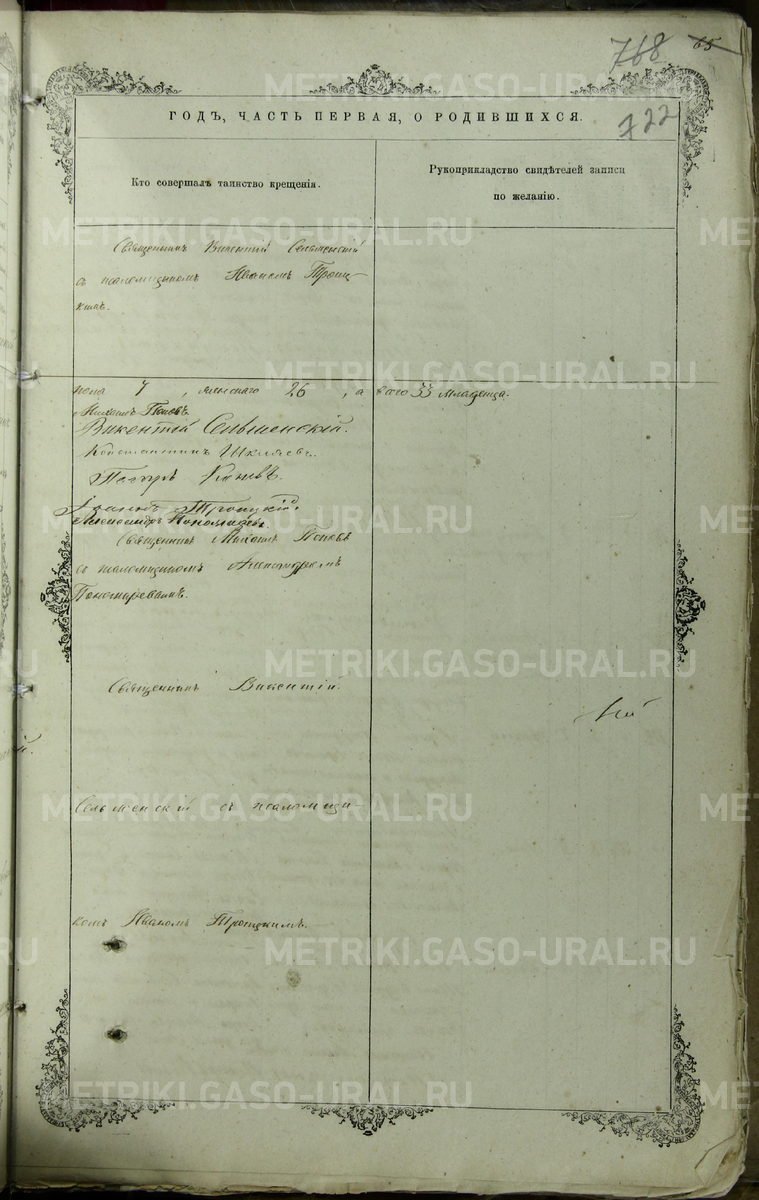 768 65
722
ГОДЪ, ЧАСТЬ ПЕРВАЯ, О РОДИВШИХСЯ.
Кто совершалъ таинство крещенія.
Рукоприкладство свидѣтелей записи
по желанію.
Священникъ Викентій Сельменскій
съ псаломщикомъ Иваномъ Троиц-
кимъ.
пола 7, женскаго 26, а всего 33 младенца.
Михаилъ Поповъ
Викентій Сельменскій.
Константинъ Шкляевъ.
Іоаннъ Троицкій.
Александръ Пономаревъ.
Священникъ Михаилъ Поповъ
съ псаломщикомъ Александромъ
Пономаревымъ.
Священникъ Викентій
Сельменскій съ псаломщи-
комъ Иваномъ Троицкимъ.
METRIKI.GASO-URAL.RU